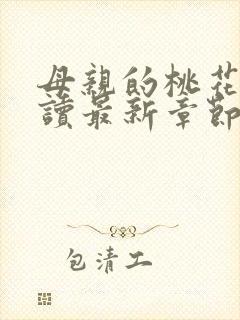 母親的桃花
讀最新章節
包清工